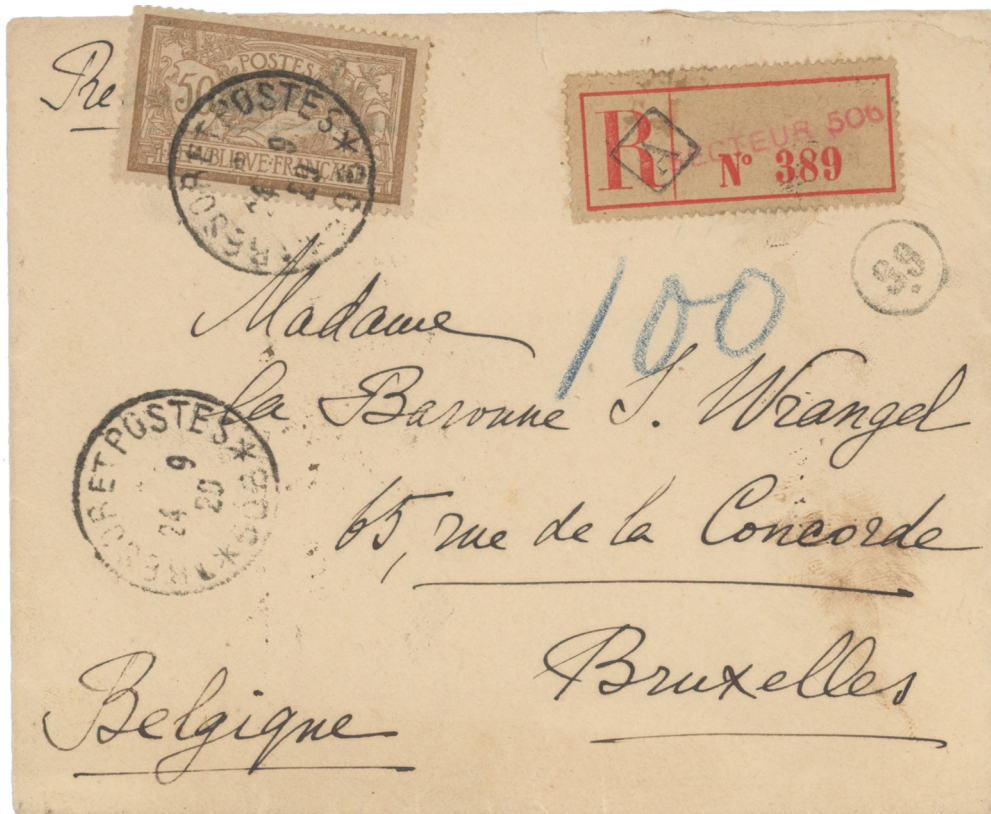 50
POSTES
REPUBLIQUE FRANÇAISE
TRESOR ET POSTES * 506 *
24 9
20
R
SECTEUR 506
N° 389
A
99
100
Madame
la Baronne S. Wrangel
65, rue de la Concorde
Bruxelles
TRESOR ET POSTES * 506 *
24 9
20
Belgique